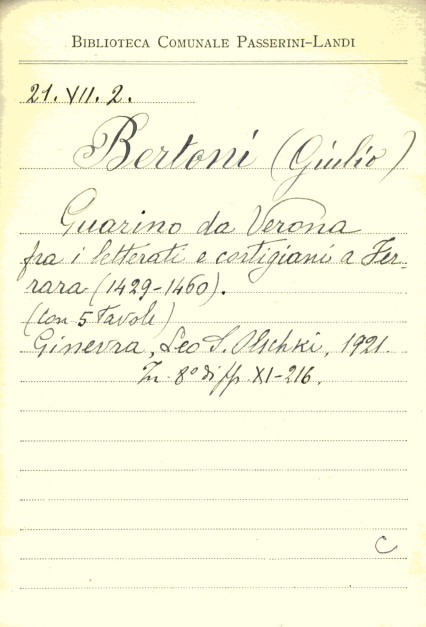 BIBLIOTECA COMUNALE PASSERINI-LANDI
21. VII. 2.
Bertoni (Giulio)
Guarino da Verona
fra i letterati e cortigiani a Fer-
rara (1429-1460).
(con 5 Tavole)
Ginevra, Leo S. Olschki, 1921.
In 8° di pp. XI-216.
C